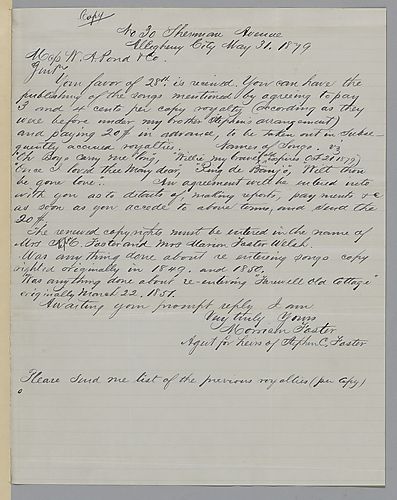 Copy
No 30 Sherman Avenue
Allegheny City May 31. 1879
Mess W. A. Pond & Co.
Gents
Your favor of 28th is received. You can have the
publishing of the songs mentioned by agreeing to pay
3 and 4 cents per copy royalty (according as they
were before under my brother Stephen's arrangement)
and paying 20$ in advance, to be taken out in subse-
quently accrued royalties. Names of Songs. viz
"Oh Boys carry me long, "Willie my brave (expires Oct 21 1879)
"Once I loved thee Mary dear, "Ring de Banjo", "Wilt thou
be gone love". An agreement will be entered into
with you as to details of, making reports, payments &c
as soon as you accede to above terms, and send the
20$.
The renewed copyrights must be entered in the name of
Mrs Foster and Mrs Marion Foster Welsh.
Was anything done about re entering songs copy
righted originally in 1849. and 1850.
Was anything done about re-entering "Farewell Old Cottage"
originally March 22. 1851.
Awaiting your prompt reply I am
Very truly Yours
Morrison Foster
Agent for heirs of Stephen C. Foster
Please send me list of the previous royalties (per copy)